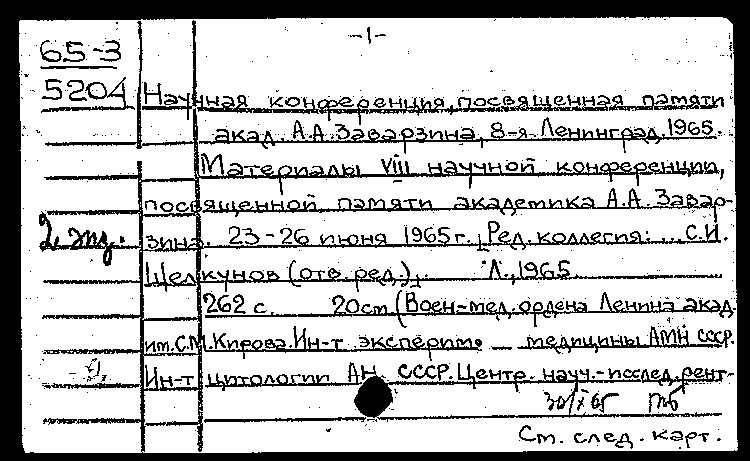 -1-
65-3
5204 Научная конференция, посвященная памяти
акад. А.А. Заварзина, 8-я. Ленинград, 1965.
Материалы VIII научной конференции,
посвященной памяти академика А.А. Завар-
2 экз. зина. 23-26 июня 1965 г. [Ред. коллегия: ... С.И.
Щелкунов (отв. ред.)]. Л., 1965.
262 с. 20см (Воен-мед. ордена Ленина акад.
им. С.М. Кирова. Ин-т эксперим. медицины АМН СССР.
Ин-т цитологии АН СССР. Центр. науч.-исслед. рент-
30/X 65
См. след. карт.